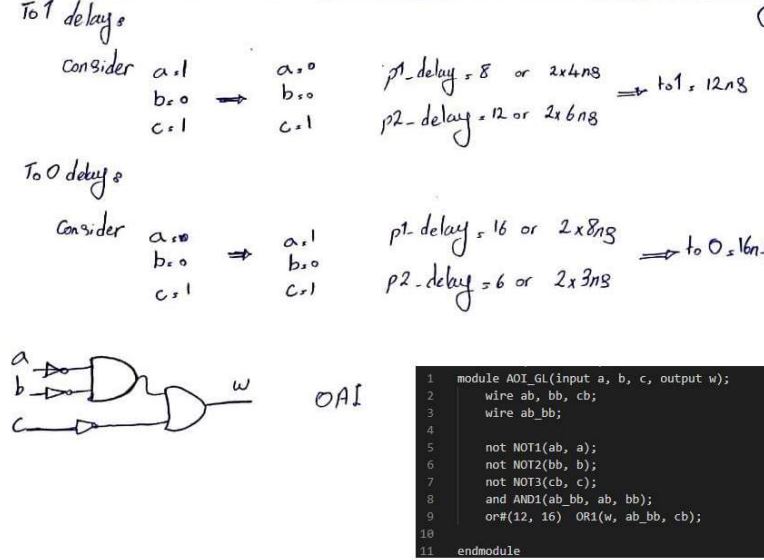 To 1 delay:
Consider a=1 a=0 p1_delay = 8 or 2x4ns
b=0 ⇒ b=0 ⇒ to1 = 12ns
c=1 c=1 p2_delay = 12 or 2x6ns
To 0 delay:
Consider a=0 a=1 p1_delay = 16 or 2x8ns
b=0 ⇒ b=0 ⇒ to 0 = 16n
c=1 c=1 p2_delay = 6 or 2x3ns
a
b w OAI
c
1 module AOI_GL(input a, b, c, output w);
2 wire ab, bb, cb;
3 wire ab_bb;
4
5 not NOT1(ab, a);
6 not NOT2(bb, b);
7 not NOT3(cb, c);
8 and AND1(ab_bb, ab, bb);
9 or#(12, 16) OR1(w, ab_bb, cb);
10
11 endmodule